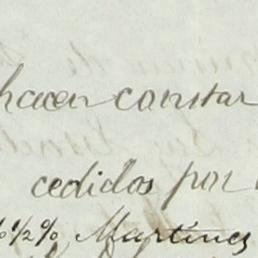 hacen constar
cedidos por
6½%, Martines